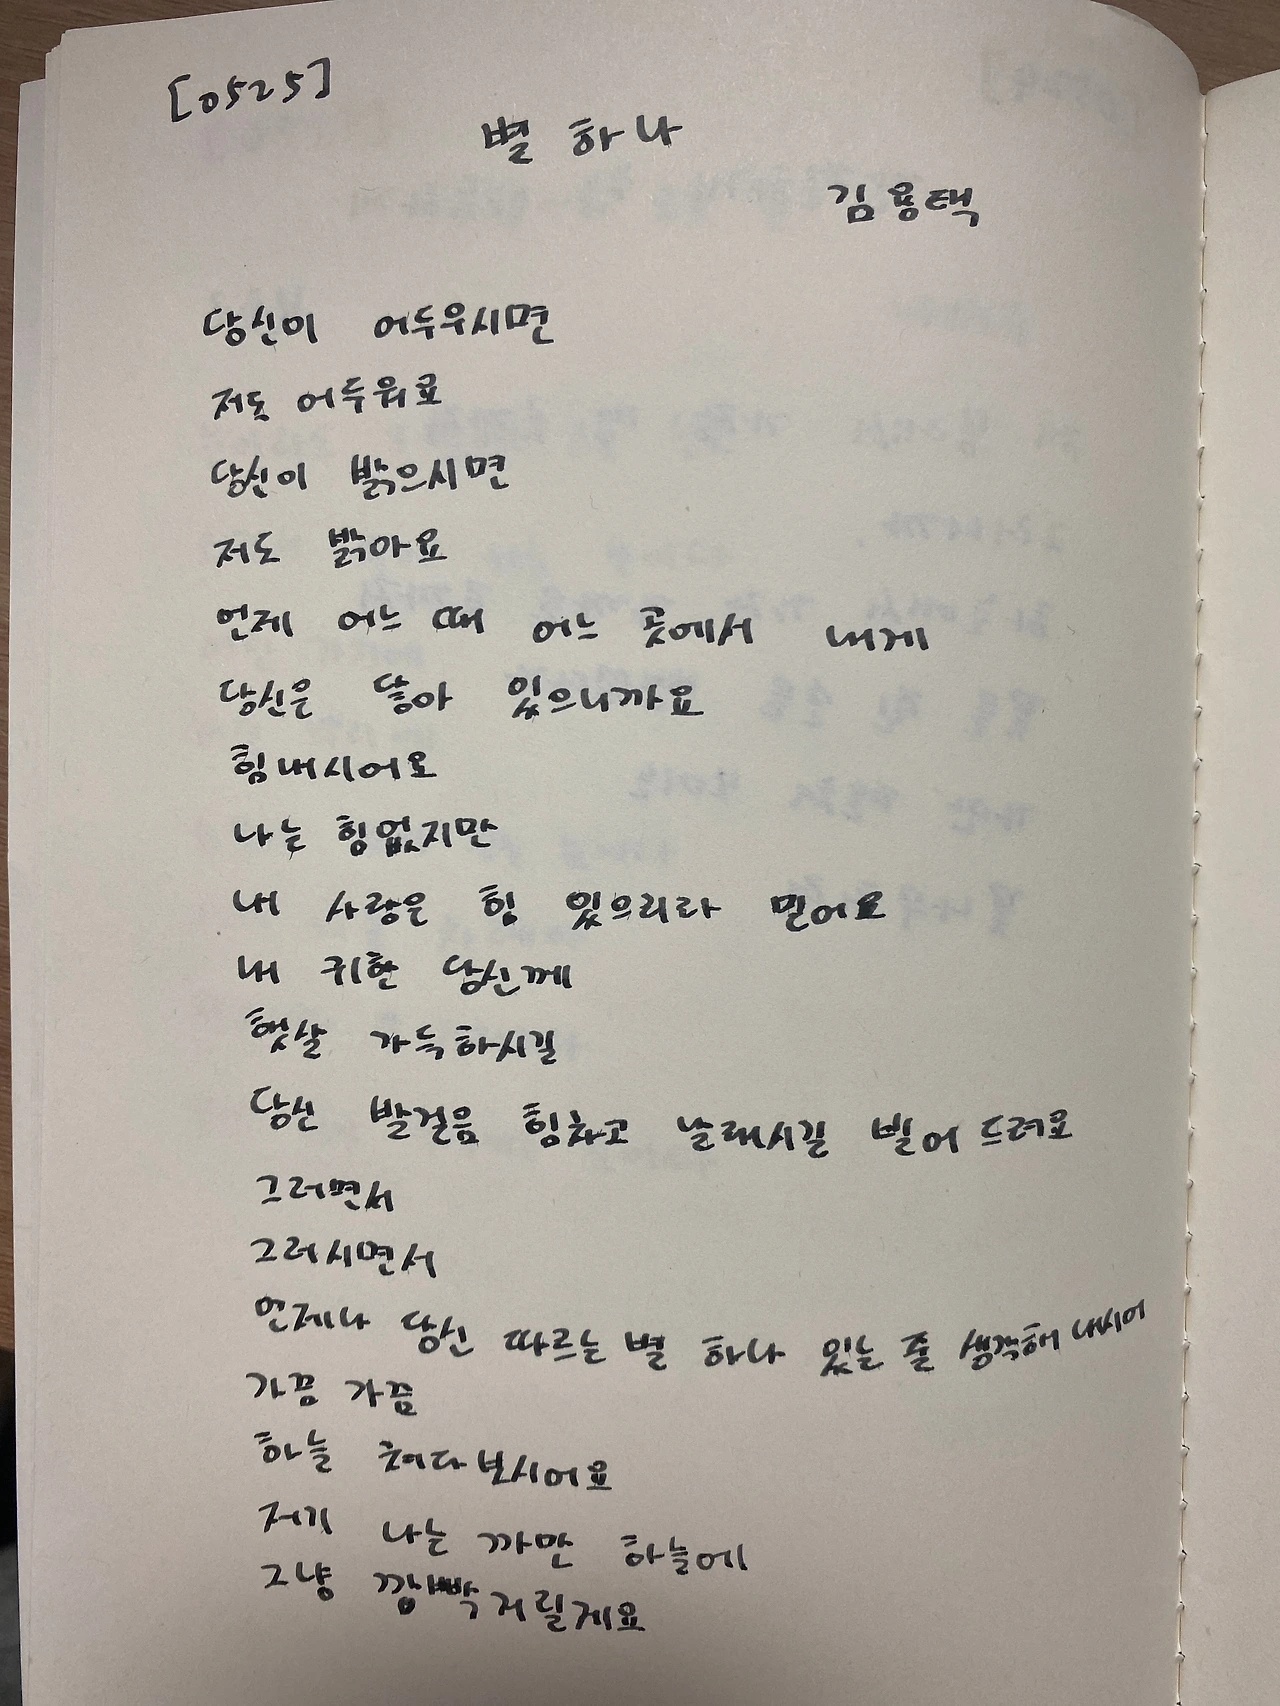 [0525]
별 하나
김용택
당신이 어두우시면
저도 어두워요
당신이 밝으시면
저도 밝아요
언제 어느 때 어느 곳에서 내게
당신은 닿아 있으니까요
힘내시어요
나는 힘없지만
내 사랑은 힘 있으리라 믿어요
내 귀한 당신께
햇살 가득하시길
당신 발걸음 힘차고 날래시길 빌어 드려요
그러면서
그러시면서
언제나 당신 따르는 별 하나 있는 줄 생각해 내시어
가끔 가끔
하늘 쳐다보시어요
저기 나는 까만 하늘에
그냥 깜빡거릴게요